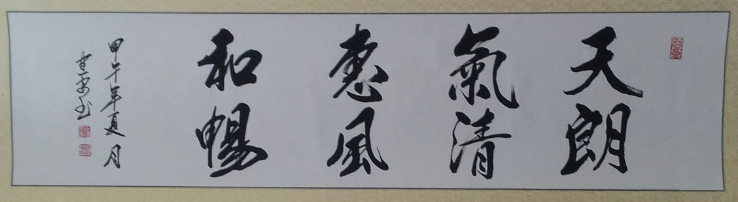 天朗
氣清
惠風
和暢
甲午年夏月